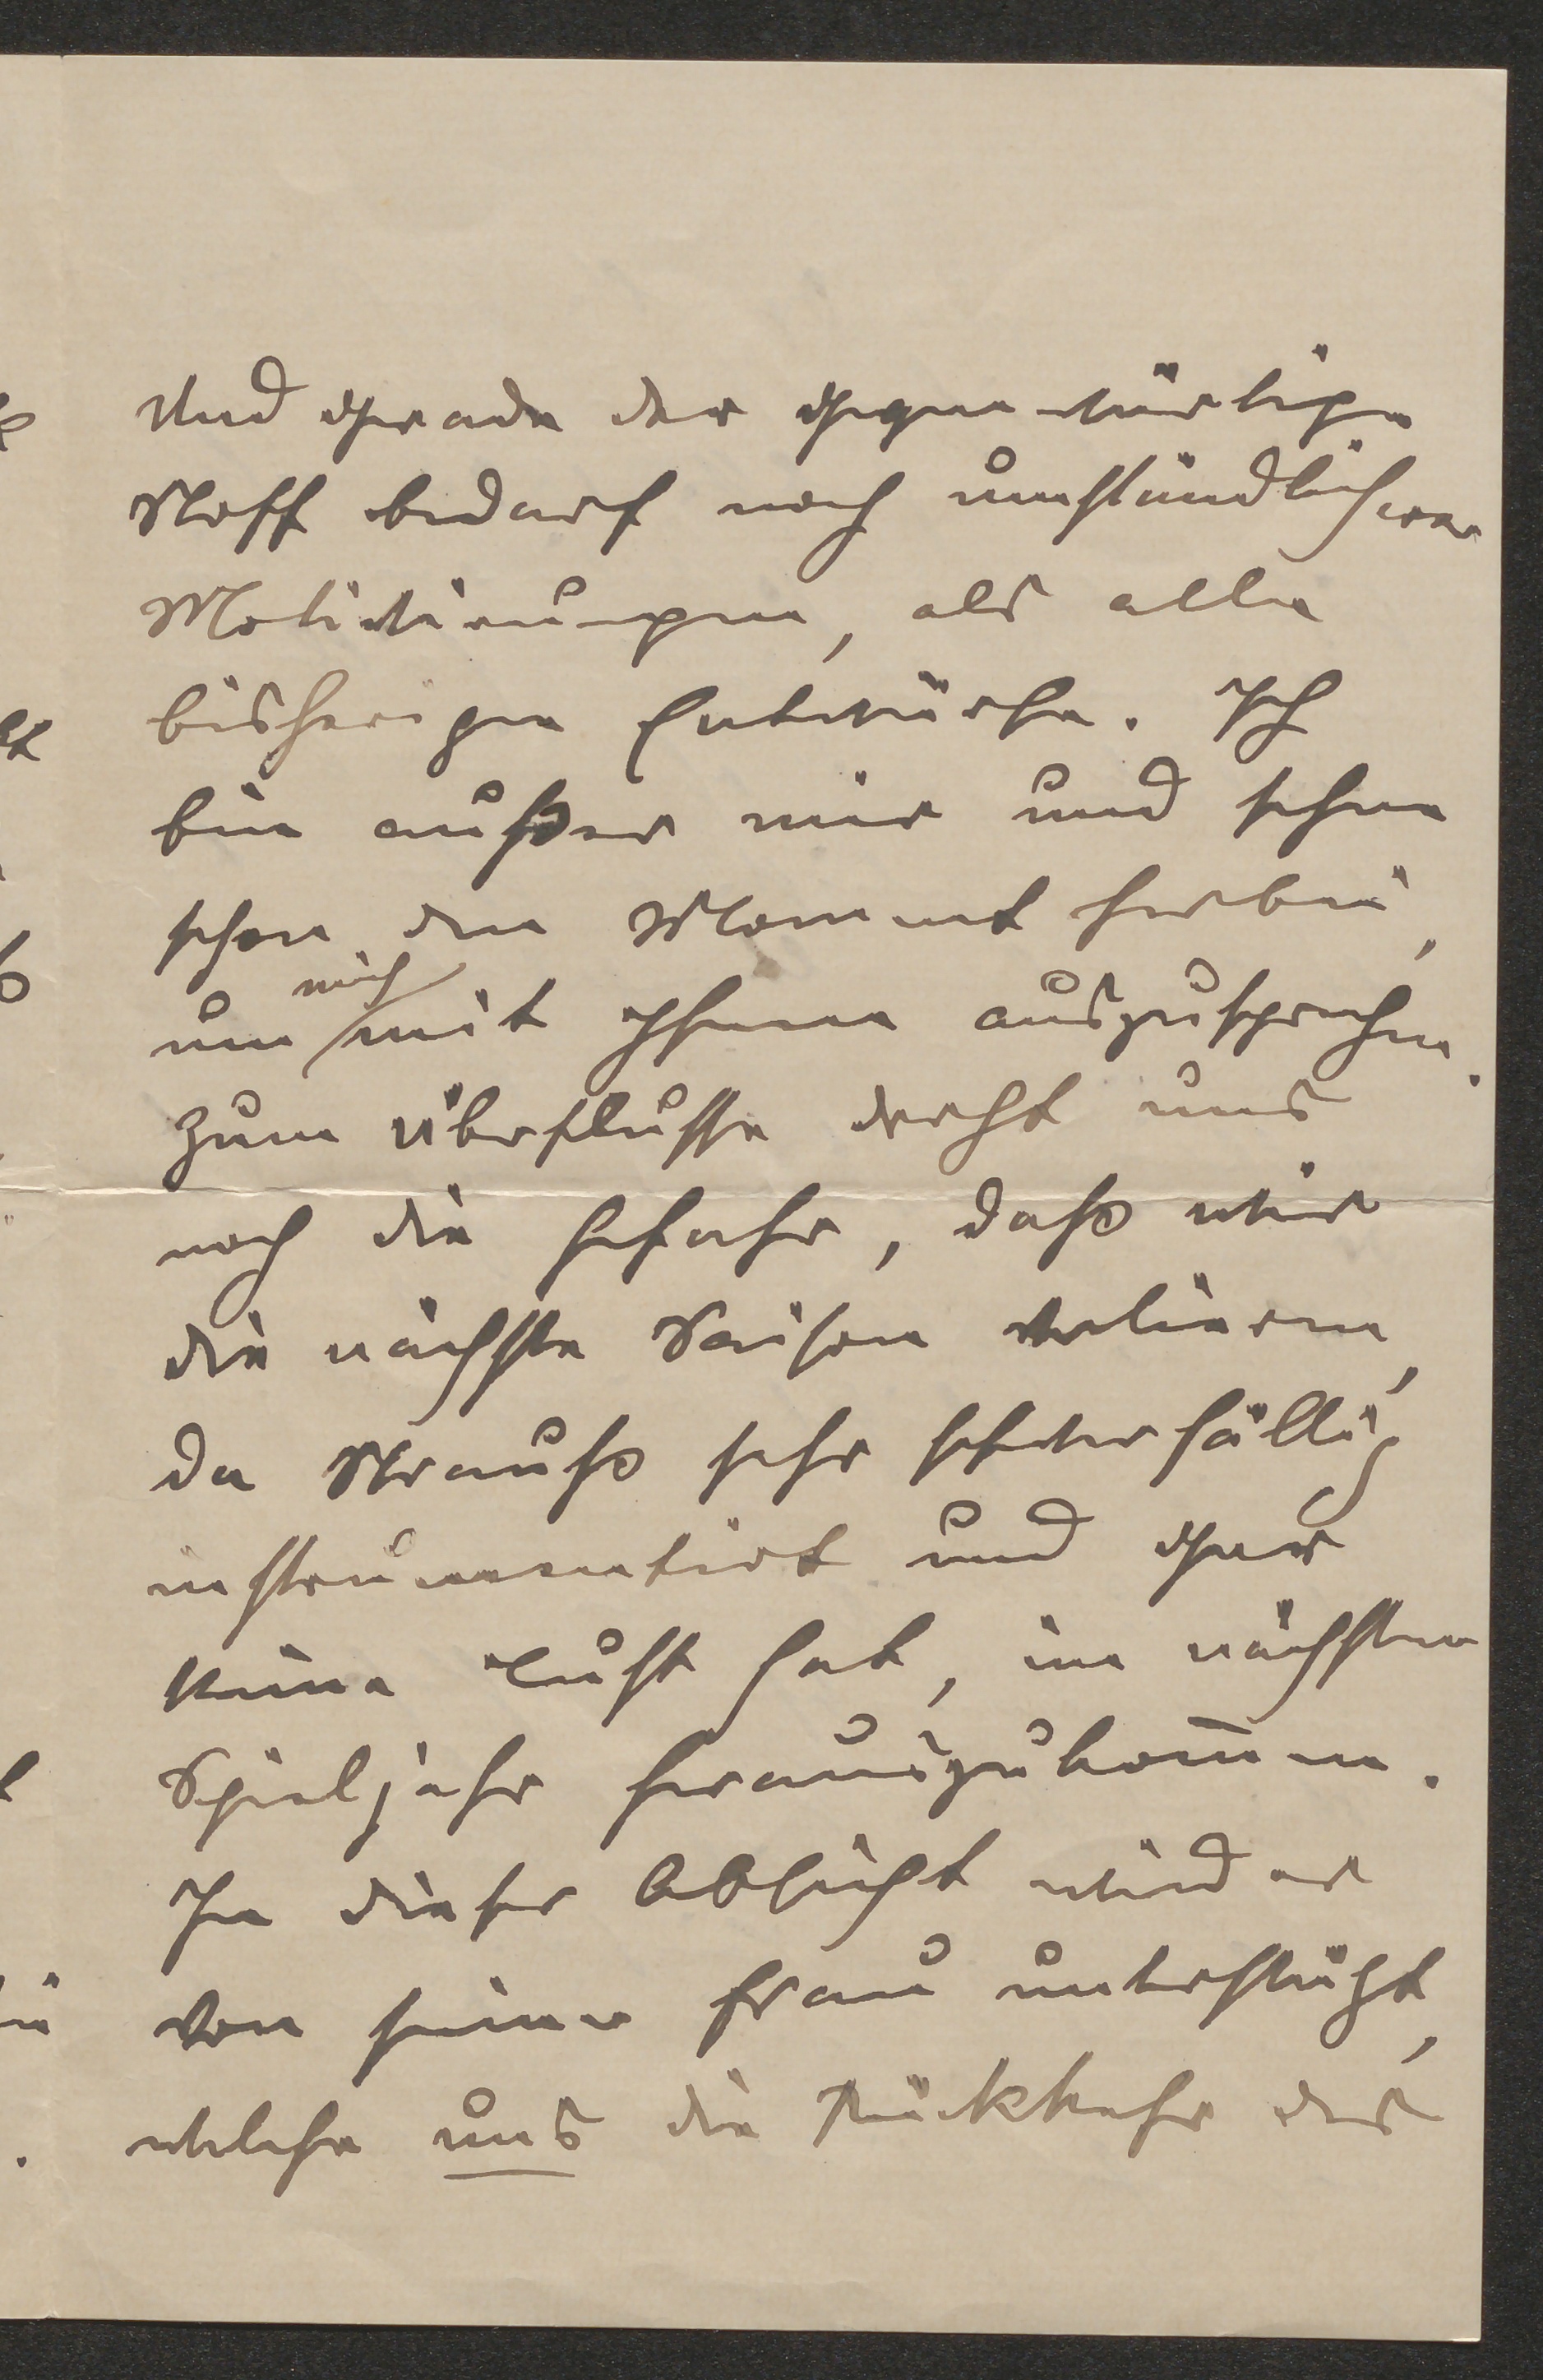 Und gerade der gegenwärtige
Stoff bedarf noch umständlicherer
Motivirungen, als alle
bisherigen Entwürfe. Ich
bin außer mir und sehne
schon den Moment herbei,
um mich mit Ihnen auszusprechen.
Zum Überflusse droht uns
noch die Gefahr, daß wir
die nächste Saison verlieren,
da Strauß sehr schwerfällig
instrumentirt und gar
keine Lust hat, im nächsten
Spieljahr herauszukom̅en.
In dieser Absicht wird er
von seiner Frau unterstützt,
welche uns die Rückkehr des